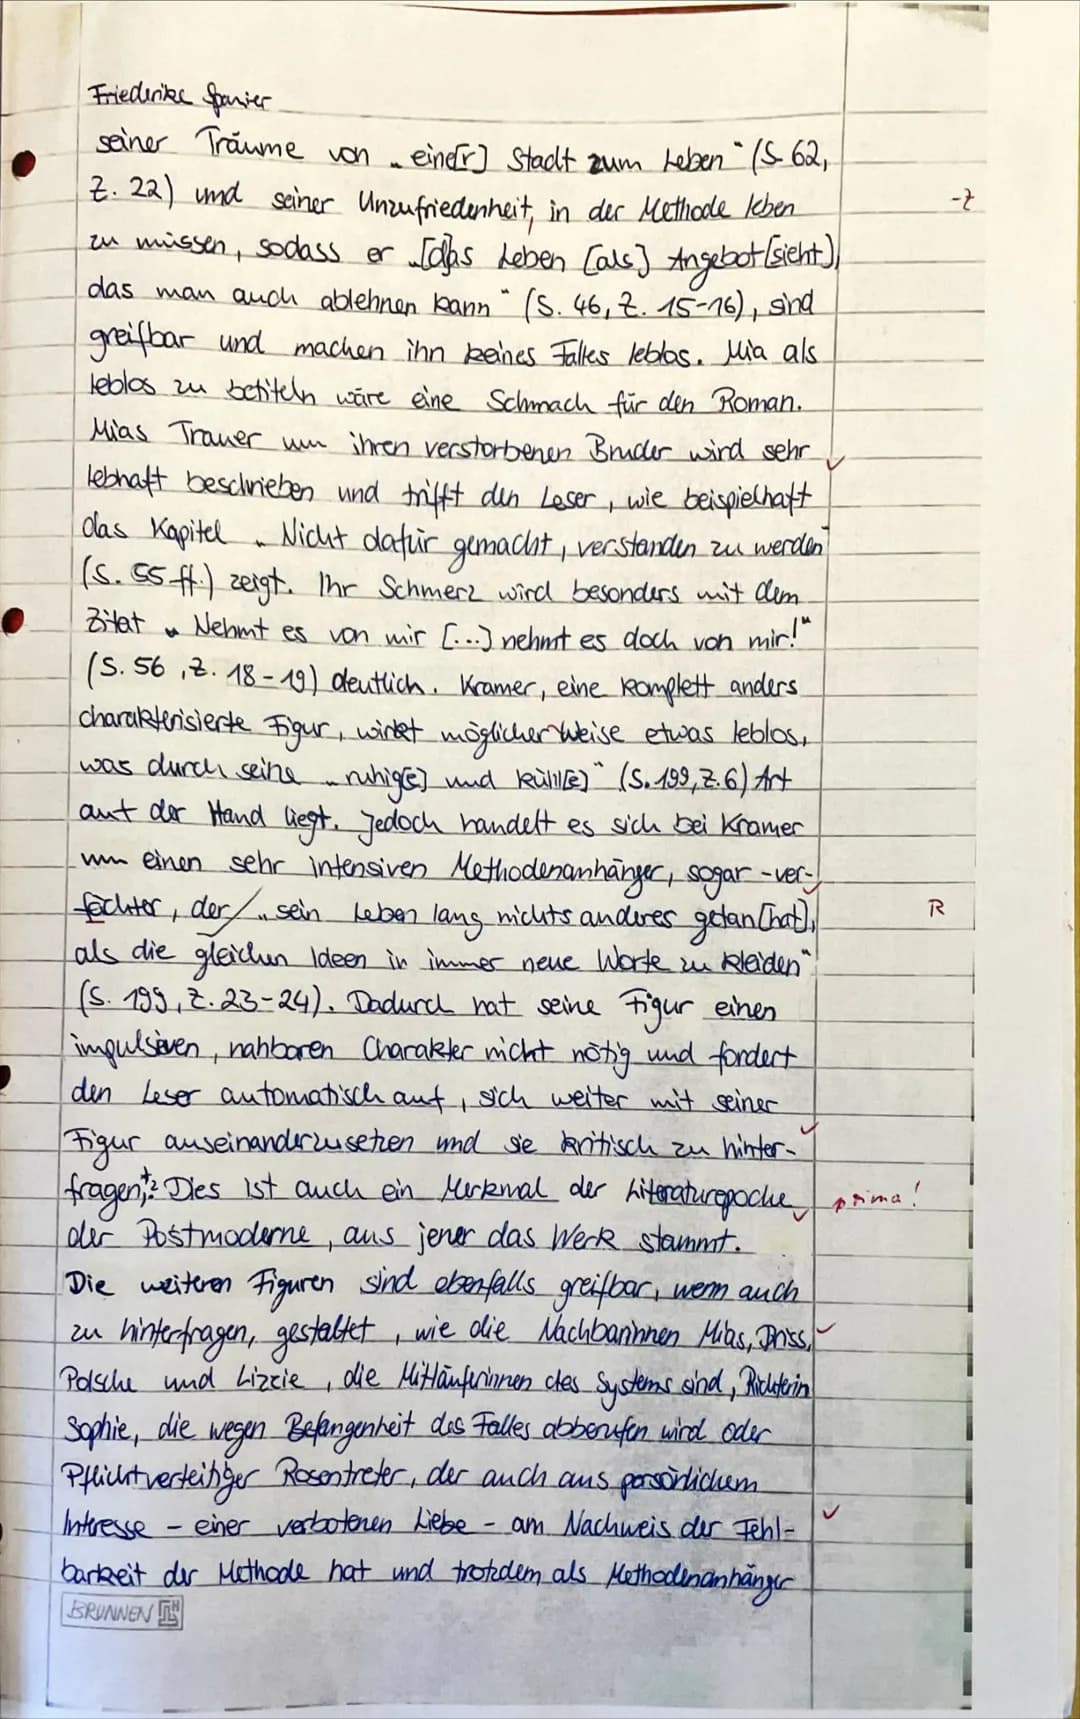 Friederike Spanier
seiner Träume von „eine[r] Stadt zum Leben" (S. 62,
Z. 22) und seiner Unzufriedenheit, in der Methode leben -Z
zu müssen, sodass er „[d]as Leben [als] Angebot [sieht],
das man auch ablehnen kann" (S. 46, Z. 15-16), sind
greifbar und machen ihn keines Falles leblos. Mia als
leblos zu betiteln wäre eine Schmach für den Roman.
Mias Trauer um ihren verstorbenen Bruder wird sehr
lebhaft beschrieben und trifft den Leser, wie beispielhaft
das Kapitel „Nicht dafür gemacht, verstanden zu werden"
(S. 55 ff.) zeigt. Ihr Schmerz wird besonders mit dem
Zitat „Nehmt es von mir [...] nehmt es doch von mir!"
(S. 56, Z. 18-19) deutlich. Kramer, eine komplett anders
charakterisierte Figur, wirkt möglicher Weise etwas leblos,
was durch seine „ruhig[e] und kühl[e]" (S. 199, Z. 6) Art
auf der Hand liegt. Jedoch handelt es sich bei Kramer
um einen sehr intensiven Methodenanhänger, sogar -ver-
fechter, der „sein Leben lang nichts anderes getan [hat], R
als die gleichen Ideen in immer neue Worte zu kleiden"
(S. 199, Z. 23-24). Dadurch hat seine Figur einen
impulsiven, nahbaren Charakter nicht nötig und fordert
den Leser automatisch auf, sich weiter mit seiner
Figur auseinanderzusetzen und sie kritisch zu hinter-
fragen. +2 Dies ist auch ein Merkmal der Literaturepoche prima!
der Postmoderne, aus jener das Werk stammt.
Die weiteren Figuren sind ebenfalls greifbar, wenn auch
zu hinterfragen, gestaltet, wie die Nachbarinnen Mias, Driss,
Polsche und Lizzie, die Mitläuferinnen des Systems sind, Richterin
Sophie, die wegen Befangenheit des Falles abberufen wird oder
Pflichtverteitiger Rosentreter, der auch aus persönlichem
Interesse - einer verbotenen Liebe - am Nachweis der Fehl-
barkeit der Methode hat und trotzdem als Methodenanhänger
BRUNNEN